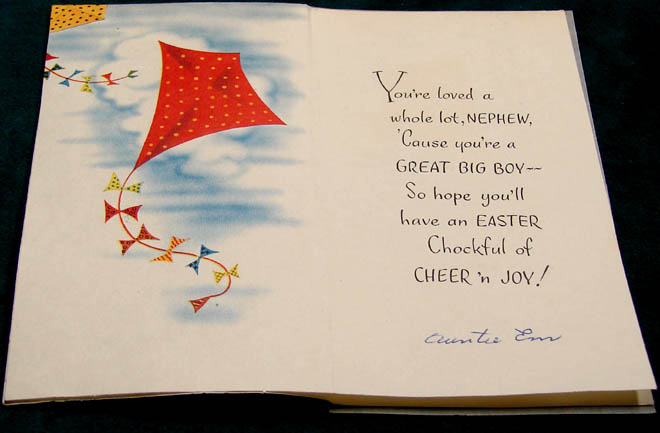 You're loved a
whole lot, NEPHEW,
'Cause you're a
GREAT BIG BOY--
So hope you'll
have an EASTER
Chockful of
CHEER 'n JOY!
auntie Em